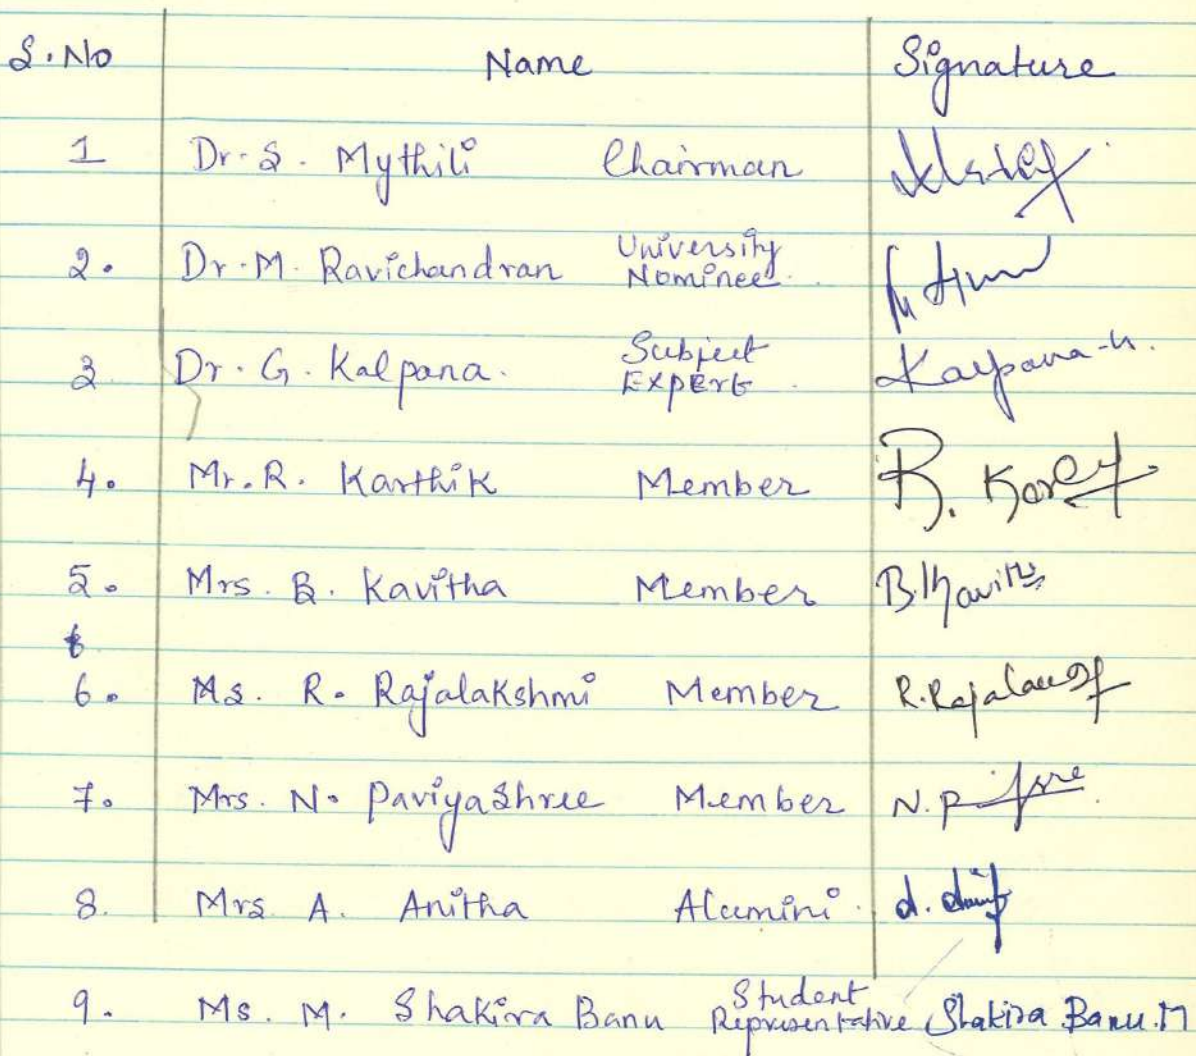 S.No Name Signature
1 Dr. S. Mythili Chairman
2. Dr. M. Ravichandran University Nominee.
3 Dr. G. Kalpana. Subject Expert. Kalpana-G.
4. Mr. R. Karthik Member R.
5. Mrs. B. Kavitha Member B. Kavitha
6. Ms. R. Rajalakshmi Member R. Rajalakshmi
7. Mrs. N. Paviyashree Member N. P
8. Mrs A. Anitha Alumini.
9. Ms. M. Shakira Banu Student Representative Shakira Banu. M